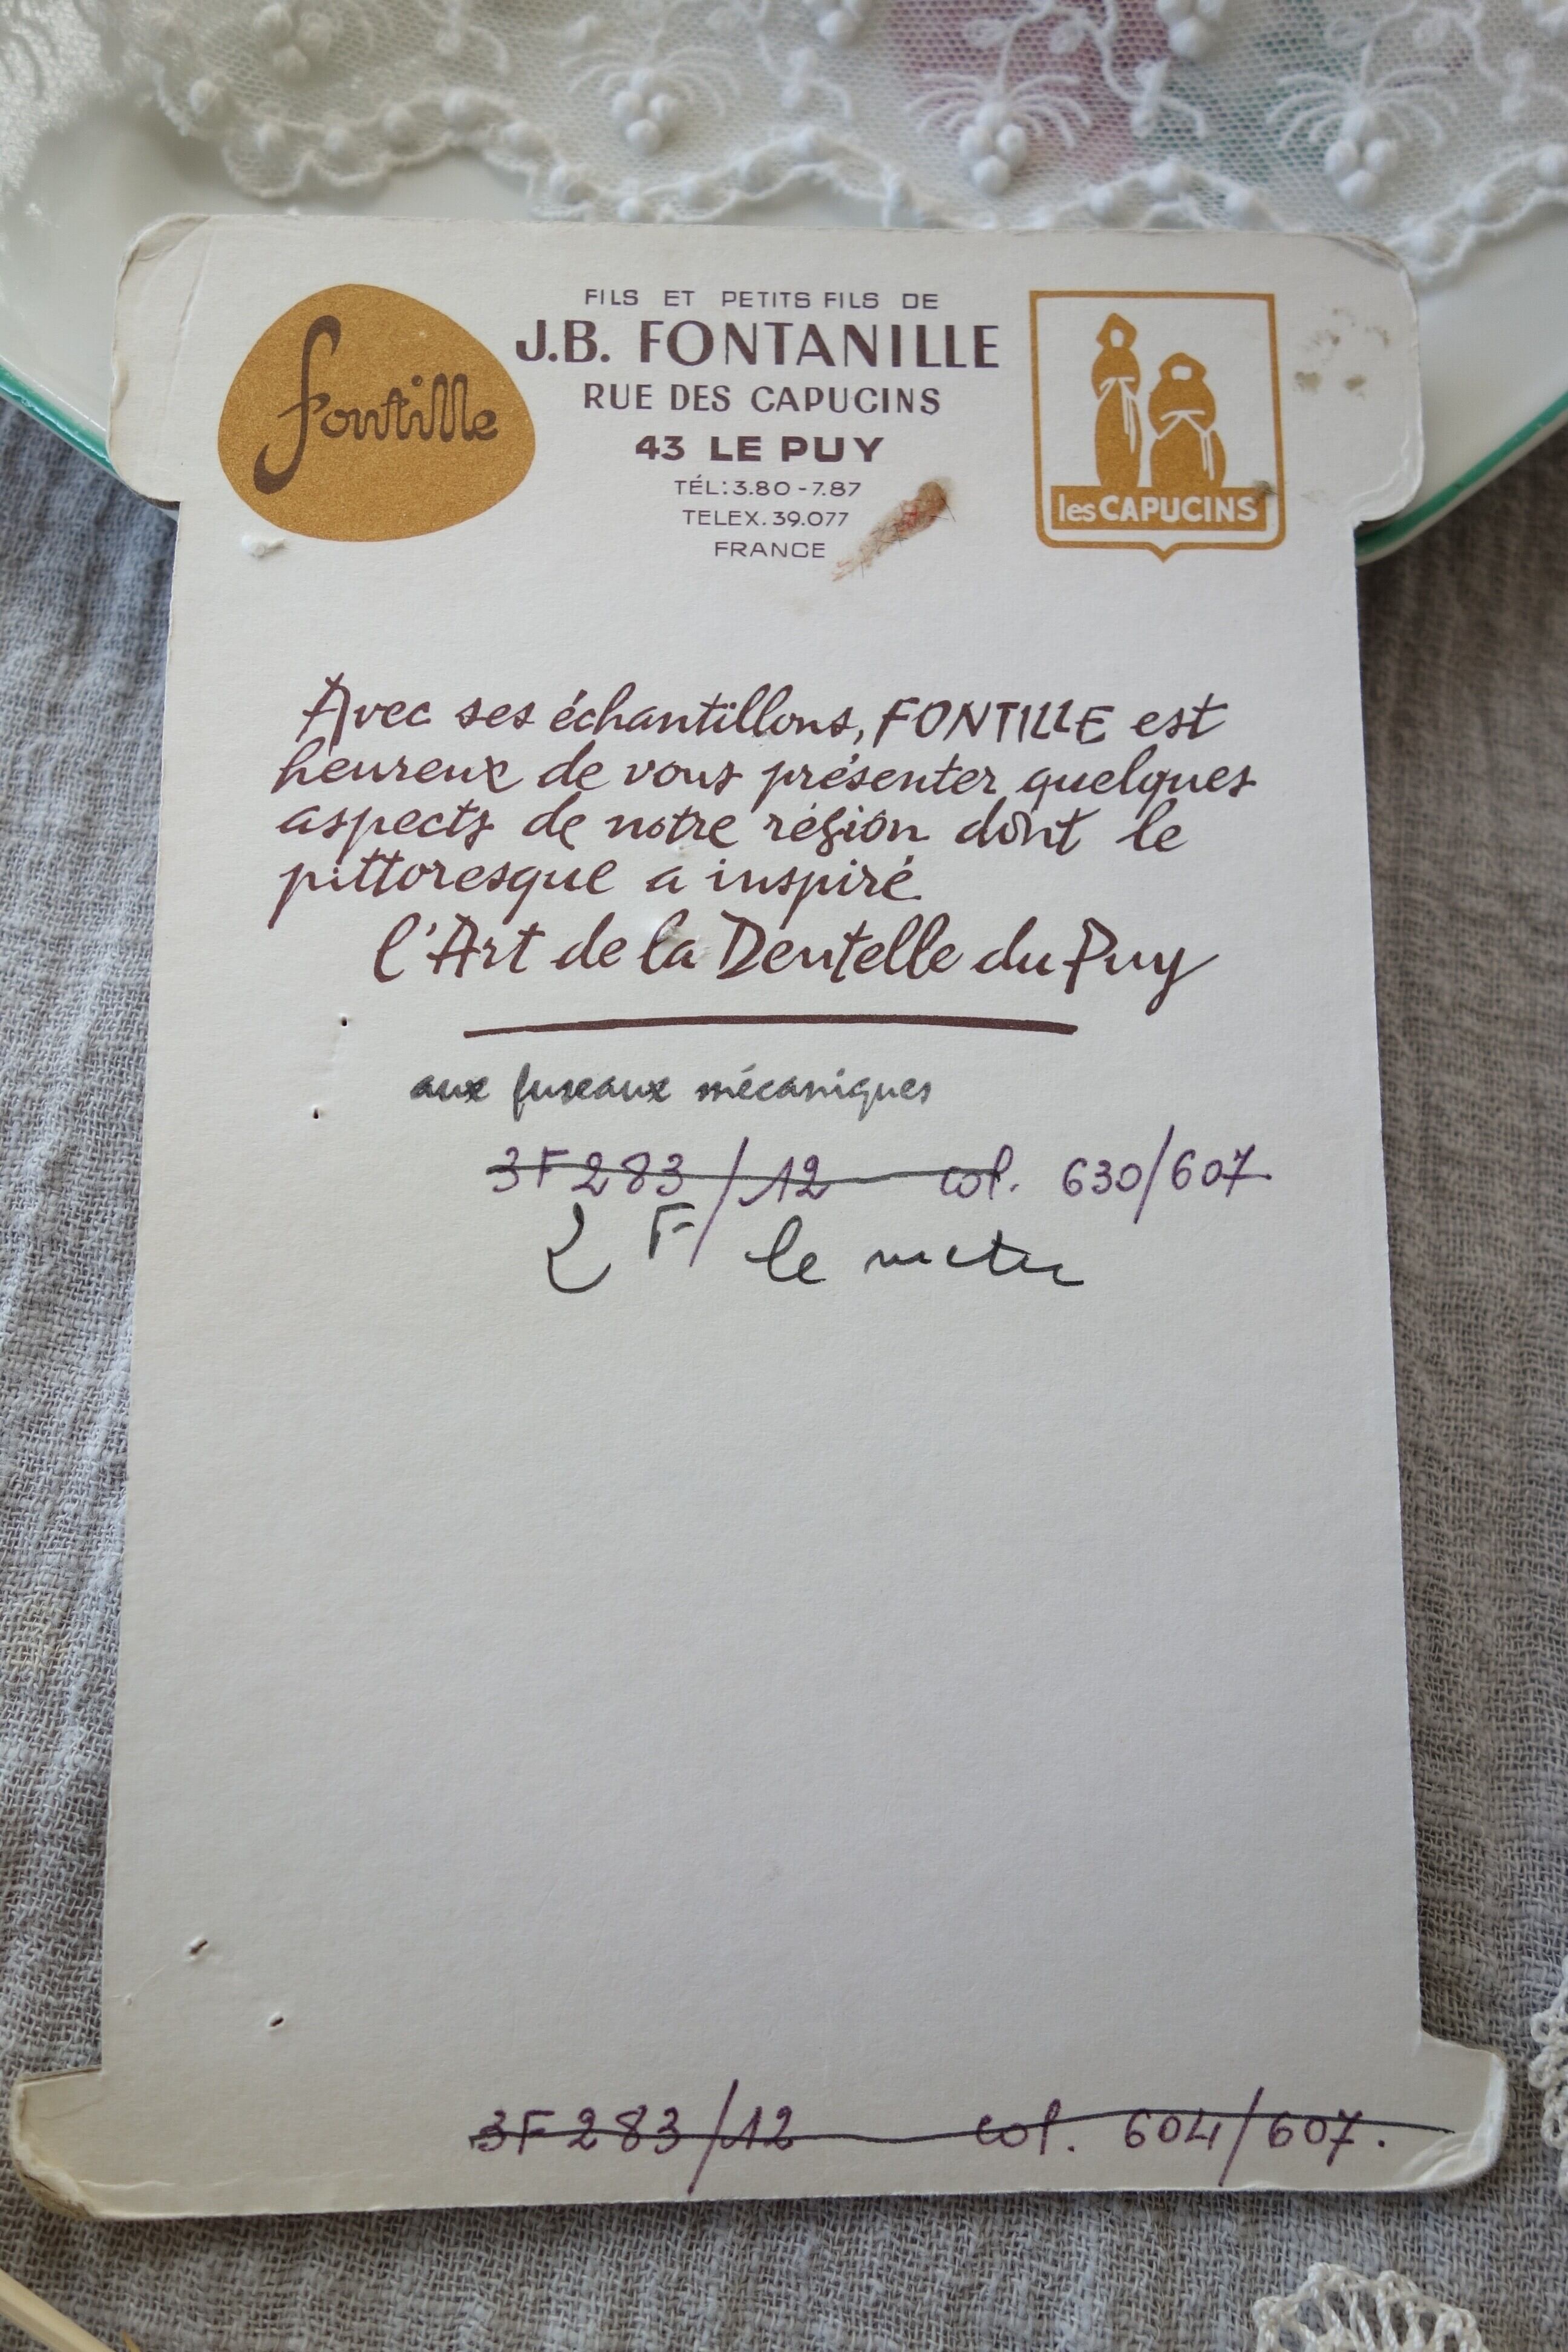 fontille
FILS ET PETITS FILS DE
J.B. FONTANILLE
RUE DES CAPUCINS
43 LE PUY
TÉL: 3.80 - 7.87
TELEX. 39.077
FRANCE
les CAPUCINS
Avec ses échantillons, FONTILLE est
heureux de vous présenter quelques
aspects de notre région dont le
pittoresque a inspiré
l'Art de la Dentelle du Puy
aux fuseaux mécaniques
3F283/12 col. 630/607
2 F le metre
3F283/12 col. 604/607.